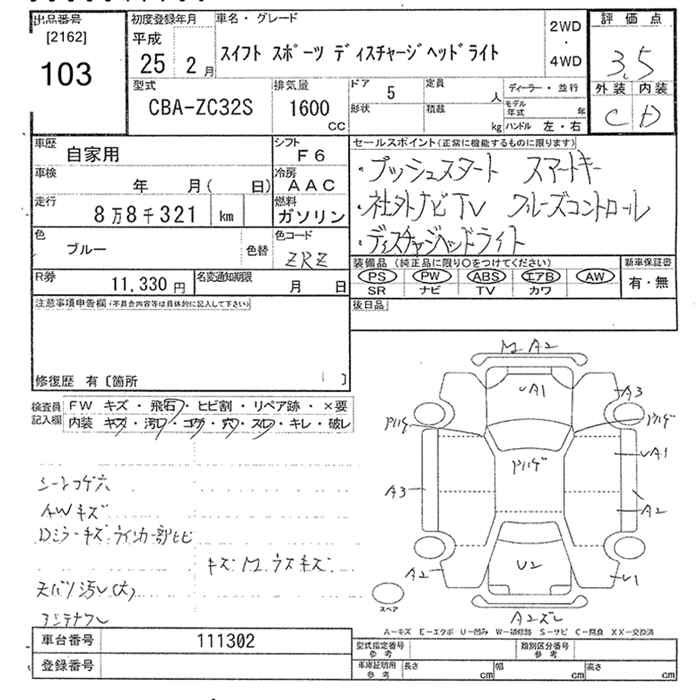 出品番号
[2162]
103
初度登録年月
平成
25 2月
車名・グレード
スイフト スポーツ ディスチャージヘッドライト
2WD
・
4WD
評価点
3.5
外装 内装
C D
型式
CBA-ZC32S
排気量
1600
CC
ドア 5
形状
定員 人
積載 kg
ディーラー・並行
モデル年式 年
ハンドル 左・右
車歴 自家用
シフト F6
車検 年 月( 日)
冷房 AAC
走行 8万8千321 km
燃料 ガソリン
色 ブルー 色替
色コード ZRZ
R券 11,330円
名変通知期限 月 日
セールスポイント(正常に機能するものに限ります)
・プッシュスタート スマートキー
・社外ナビTV クルーズコントロール
・ディスチャージヘッドライト
装備品(純正品に限り○をつけてください)
PS PW ABS エアB AW
SR ナビ TV カワ
新車保証書
有・無
後日品
注意事項申告欄(不具合内容等は具体的に記入して下さい)
修復歴 有〔箇所 〕
検査員記入欄
FW キズ・飛石・ヒビ割・リペア跡・×要
内装 キズ・汚レ・コゲ・穴・スレ・キレ・破レ
シートコゲ穴
AWキズ
Dミラーキズ ウインカー部ヒビ
キズM.ウスキズ
天バリ汚レ(大)
アンテナナシ
M A2
UA1
A3
UA1
A3
A2
A2
U2
U1
A2ズレ
スペア
A-キズ E-エクボ U-凹み W-補修跡 S-サビ C-腐食 XX-交換済
車台番号 111302
登録番号
型式指定番号 参考
類別区分番号 参考
車庫証明用 参考
長さ cm 幅 cm 高さ cm